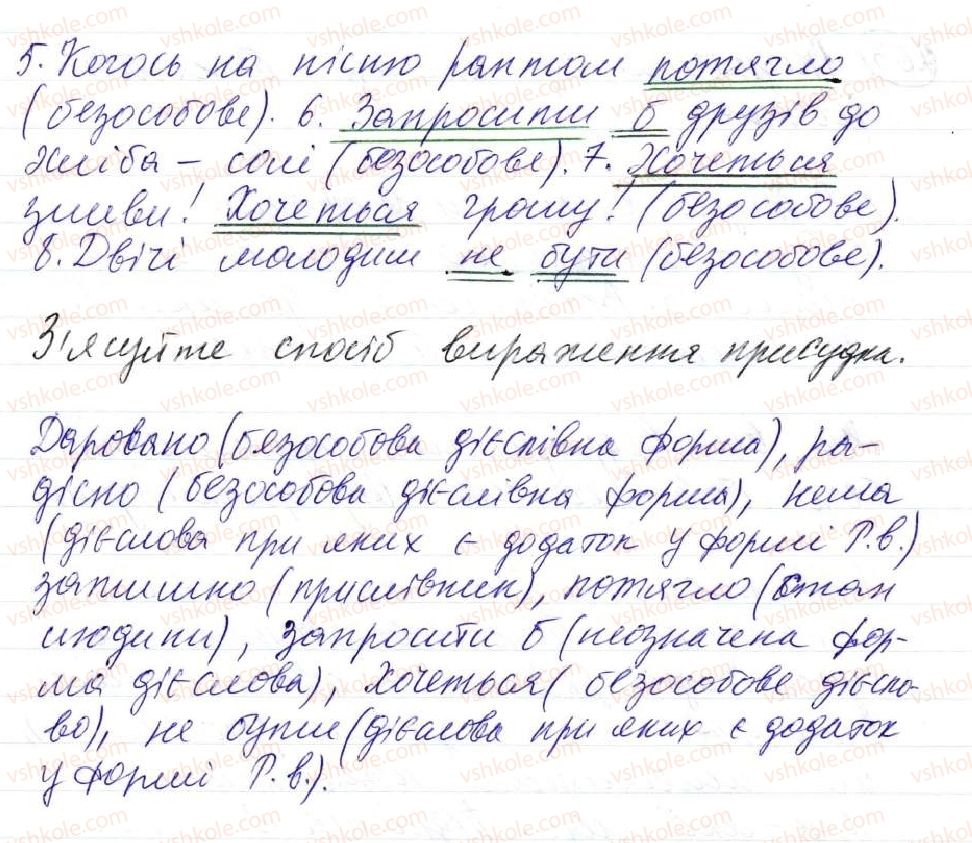 5. Когось на пісню раптом потягло
(безособове). 6. Запросити б друзів до
хліба - солі (безособове). 7. Хочеться
зливи! Хочеться грому! (безособове).
8. Двічі молодим не бути (безособове).
З'ясуйте спосіб вираження присудка.
Даровано (безособова дієслівна форма), ра-
дісно (безособова дієслівна форма), нема
(дієслова при яких є додаток у формі Р.в.)
затишно (прислівник), потягло (стан
людини), запросити б (неозначена фор-
ма дієслова), хочеться (безособове дієсло-
во), не бути (дієслова при яких є додаток
у формі Р.в.).